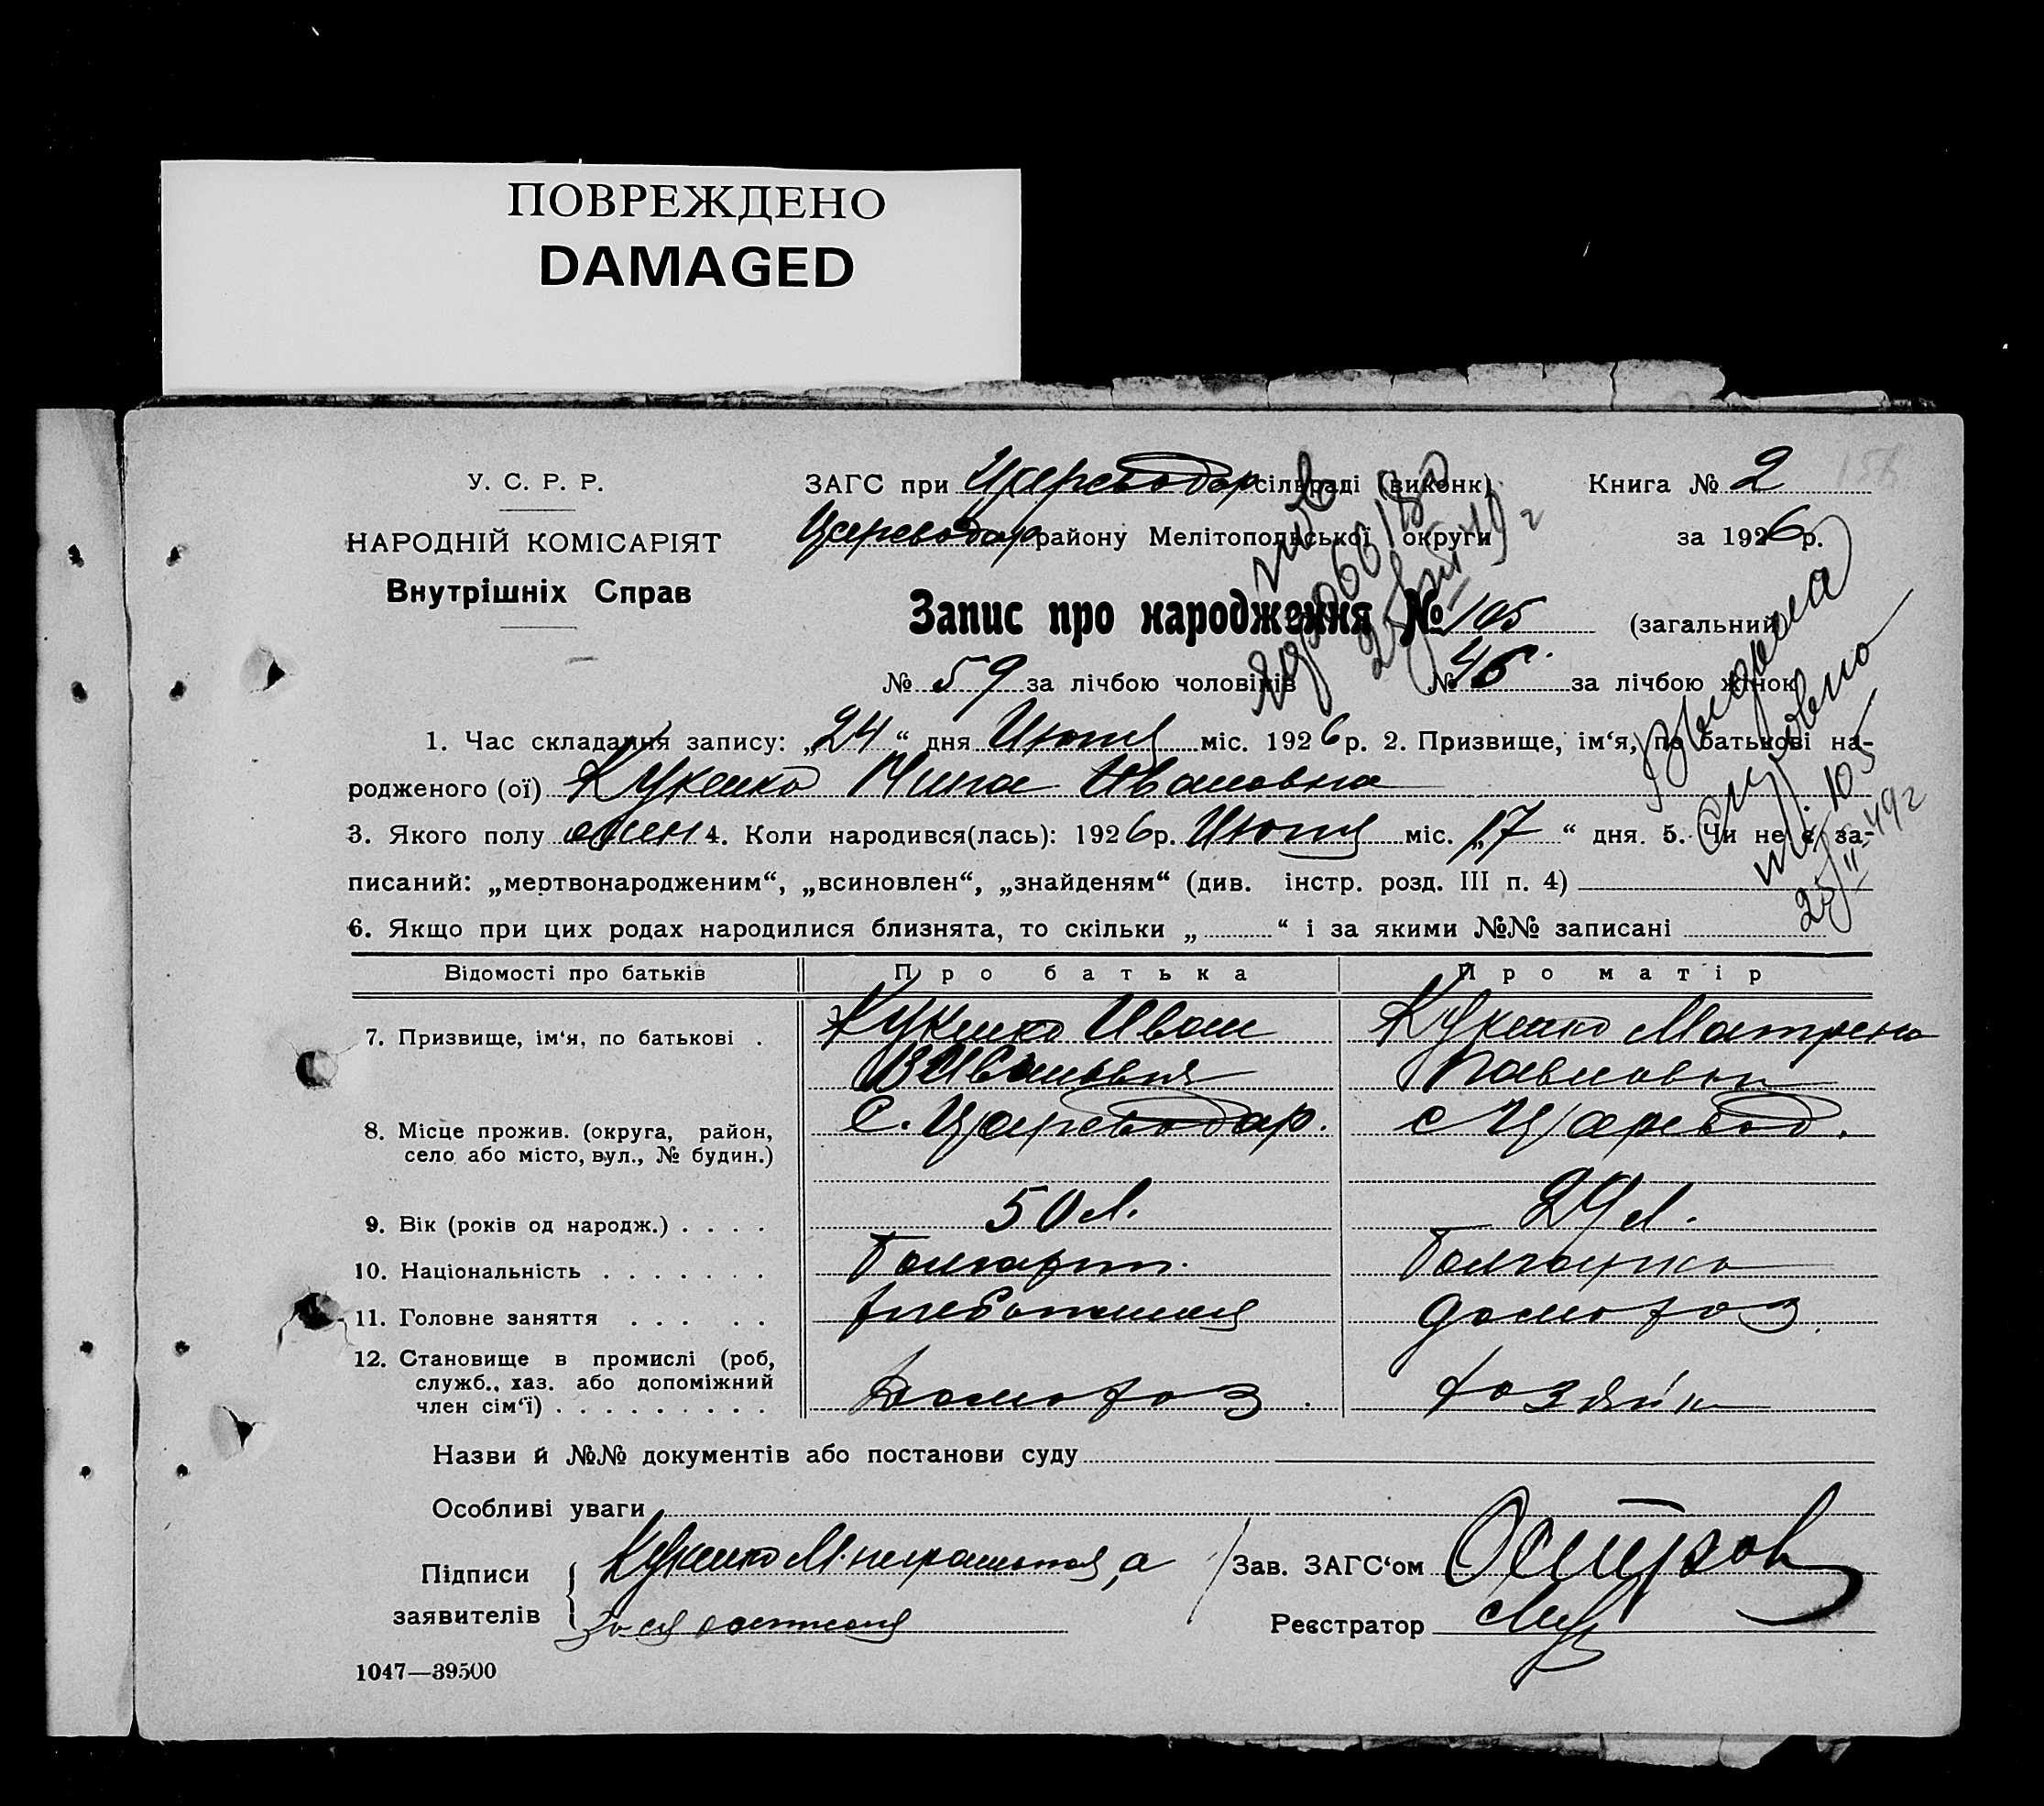 ПОВРЕЖДЕНО
DAMAGED
156
У. С. Р. Р.
НАРОДНІЙ КОМІСАРІЯТ
Внутрішніх Справ
ЗАГС при Цареводар сільраді (виконк)
Книга № 2
Цареводар району Мелітопольської округи
за 1926 р.
Запис про народження № 105 (загальний)
№ 59 за лічбою чоловіків № 46 за лічбою жінок
Выдана
повтно
105
25/II-49 г
1. Час складання запису: „24“ дня Июня міс. 1926 р. 2. Призвище, ім‘я, по батькові на-
родженого (ої) Кукенко Нина Ивановна
3. Якого полу жен 4. Коли народився(лась): 1926 р. Июня міс. „17“ дня. 5. Чи не є за-
писаний: „мертвонародженим“, „всиновлен“, „знайденям“ (див. інстр. розд. III п. 4)
6. Якщо при цих родах народилися близнята, то скільки „ “ і за якими №№ записані
Відомості про батьків Про батька Про матір
7. Призвище, ім‘я, по батькові . Кукенко Иван Кукенко Матрена
Иванович Павловна
8. Місце прожив. (округа, район, С. Цареводар. с Царевод.
село або місто, вул., № будин.)
9. Вік (років од народж.) . . . . 50 л. 29 л.
10. Національність . . . . . . . Болгарин. Болгарка
11. Головне заняття . . . . . хлебопашец домохоз.
12. Становище в промислі (роб, домохоз. хозяйка
служб., хаз. або допоміжний
член сім‘ї) . . . . . . . . .
Назви й №№ документів або постанови суду
Особливі уваги
Підписи
заявителів
Кукенко М. неграмотная, а
за ся
Зав. ЗАГС‘ом
Реєстратор
1047—39500